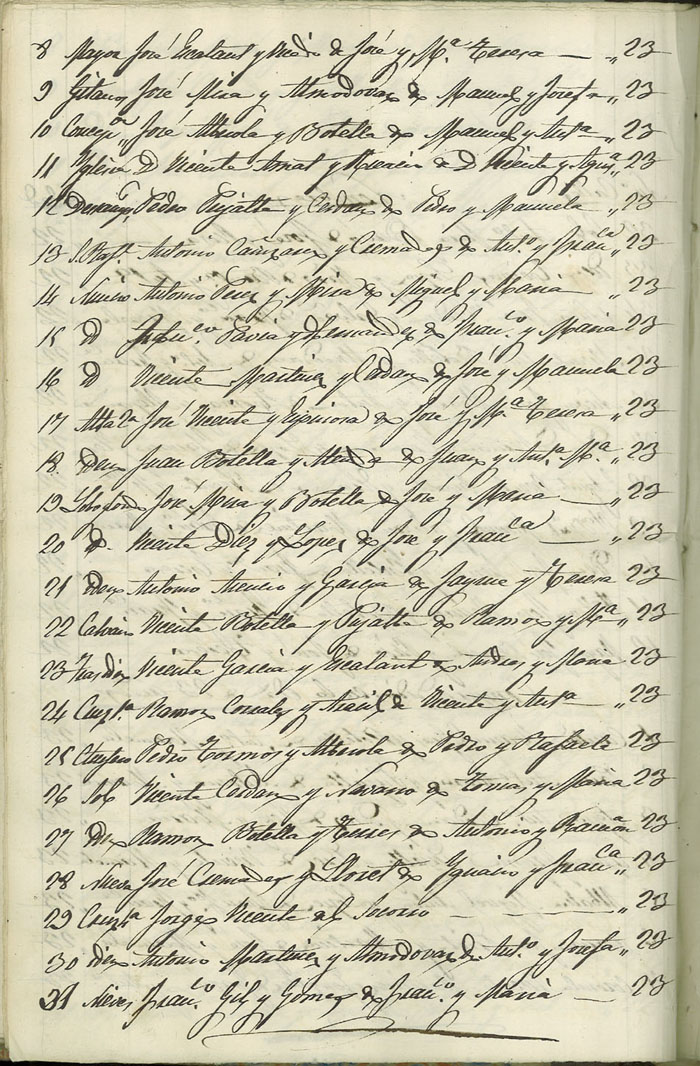 8 Mayor José Escalant y Mira de José y M.ª Teresa — „ 23
9 Gitanos José Mira y Almodovar de Manuel y Josefa „ 23
10 Concep.on José Albiola y Botella de Manuel y Ant.ª „ 23
11 Yglesia D Vicente Amat y de D Vicente y „ 23
12 Pedro Pujalte y Cerdan de Pedro y Manuela „ 23
13 S. Raf.l Antonio Cañizares y Cremades de Ant.o y Fran.ca „ 23
14 Antonio Perez y Mira de Miguel y Maria „ 23
15 D Fran.co Pavia y Hernandez de Fran.co y Maria 23
16 D Vicente Martinez y Cerdan de José y Manuela 23
17 José Vicente y Espinosa de José y M.ª Teresa „ 23
18 Den Juan Botella y de Juan y Ant.ª M.ª „ 23
19 José Mira y Botella de José y Maria — „ 23
20 D. Vicente Diez y Lopez de José y Fran.ca — „ 23
21 Den Antonio Asencio y Garcia de Jayme y Teresa 23
22 Calvario Vicente Botella y Pujalte de Ramon y M.ª „ 23
23 Vicente Garcia y Escalant de Andres y Maria 23
24 Ramon Gonzalez y de Vicente y Ant.ª „ 23
25 Pedro Tormos y Albiola de Pedro y Rafaela 23
26 Sol Vicente Cerdan y Navarro de Tomas y Maria 23
27 Den Ramon Botella y de Antonio y Ramona 23
28 Nueva José Cremades y Lloret de Ygnacio y Fran.ca „ 23
29 Jorge Vicente del Socorro — — „ 23
30 Den Antonio Martinez y Almodovar de Ant.o y Josefa „ 23
31 Nieves Fran.co Gil y Gomez de Fran.co y Maria — 23